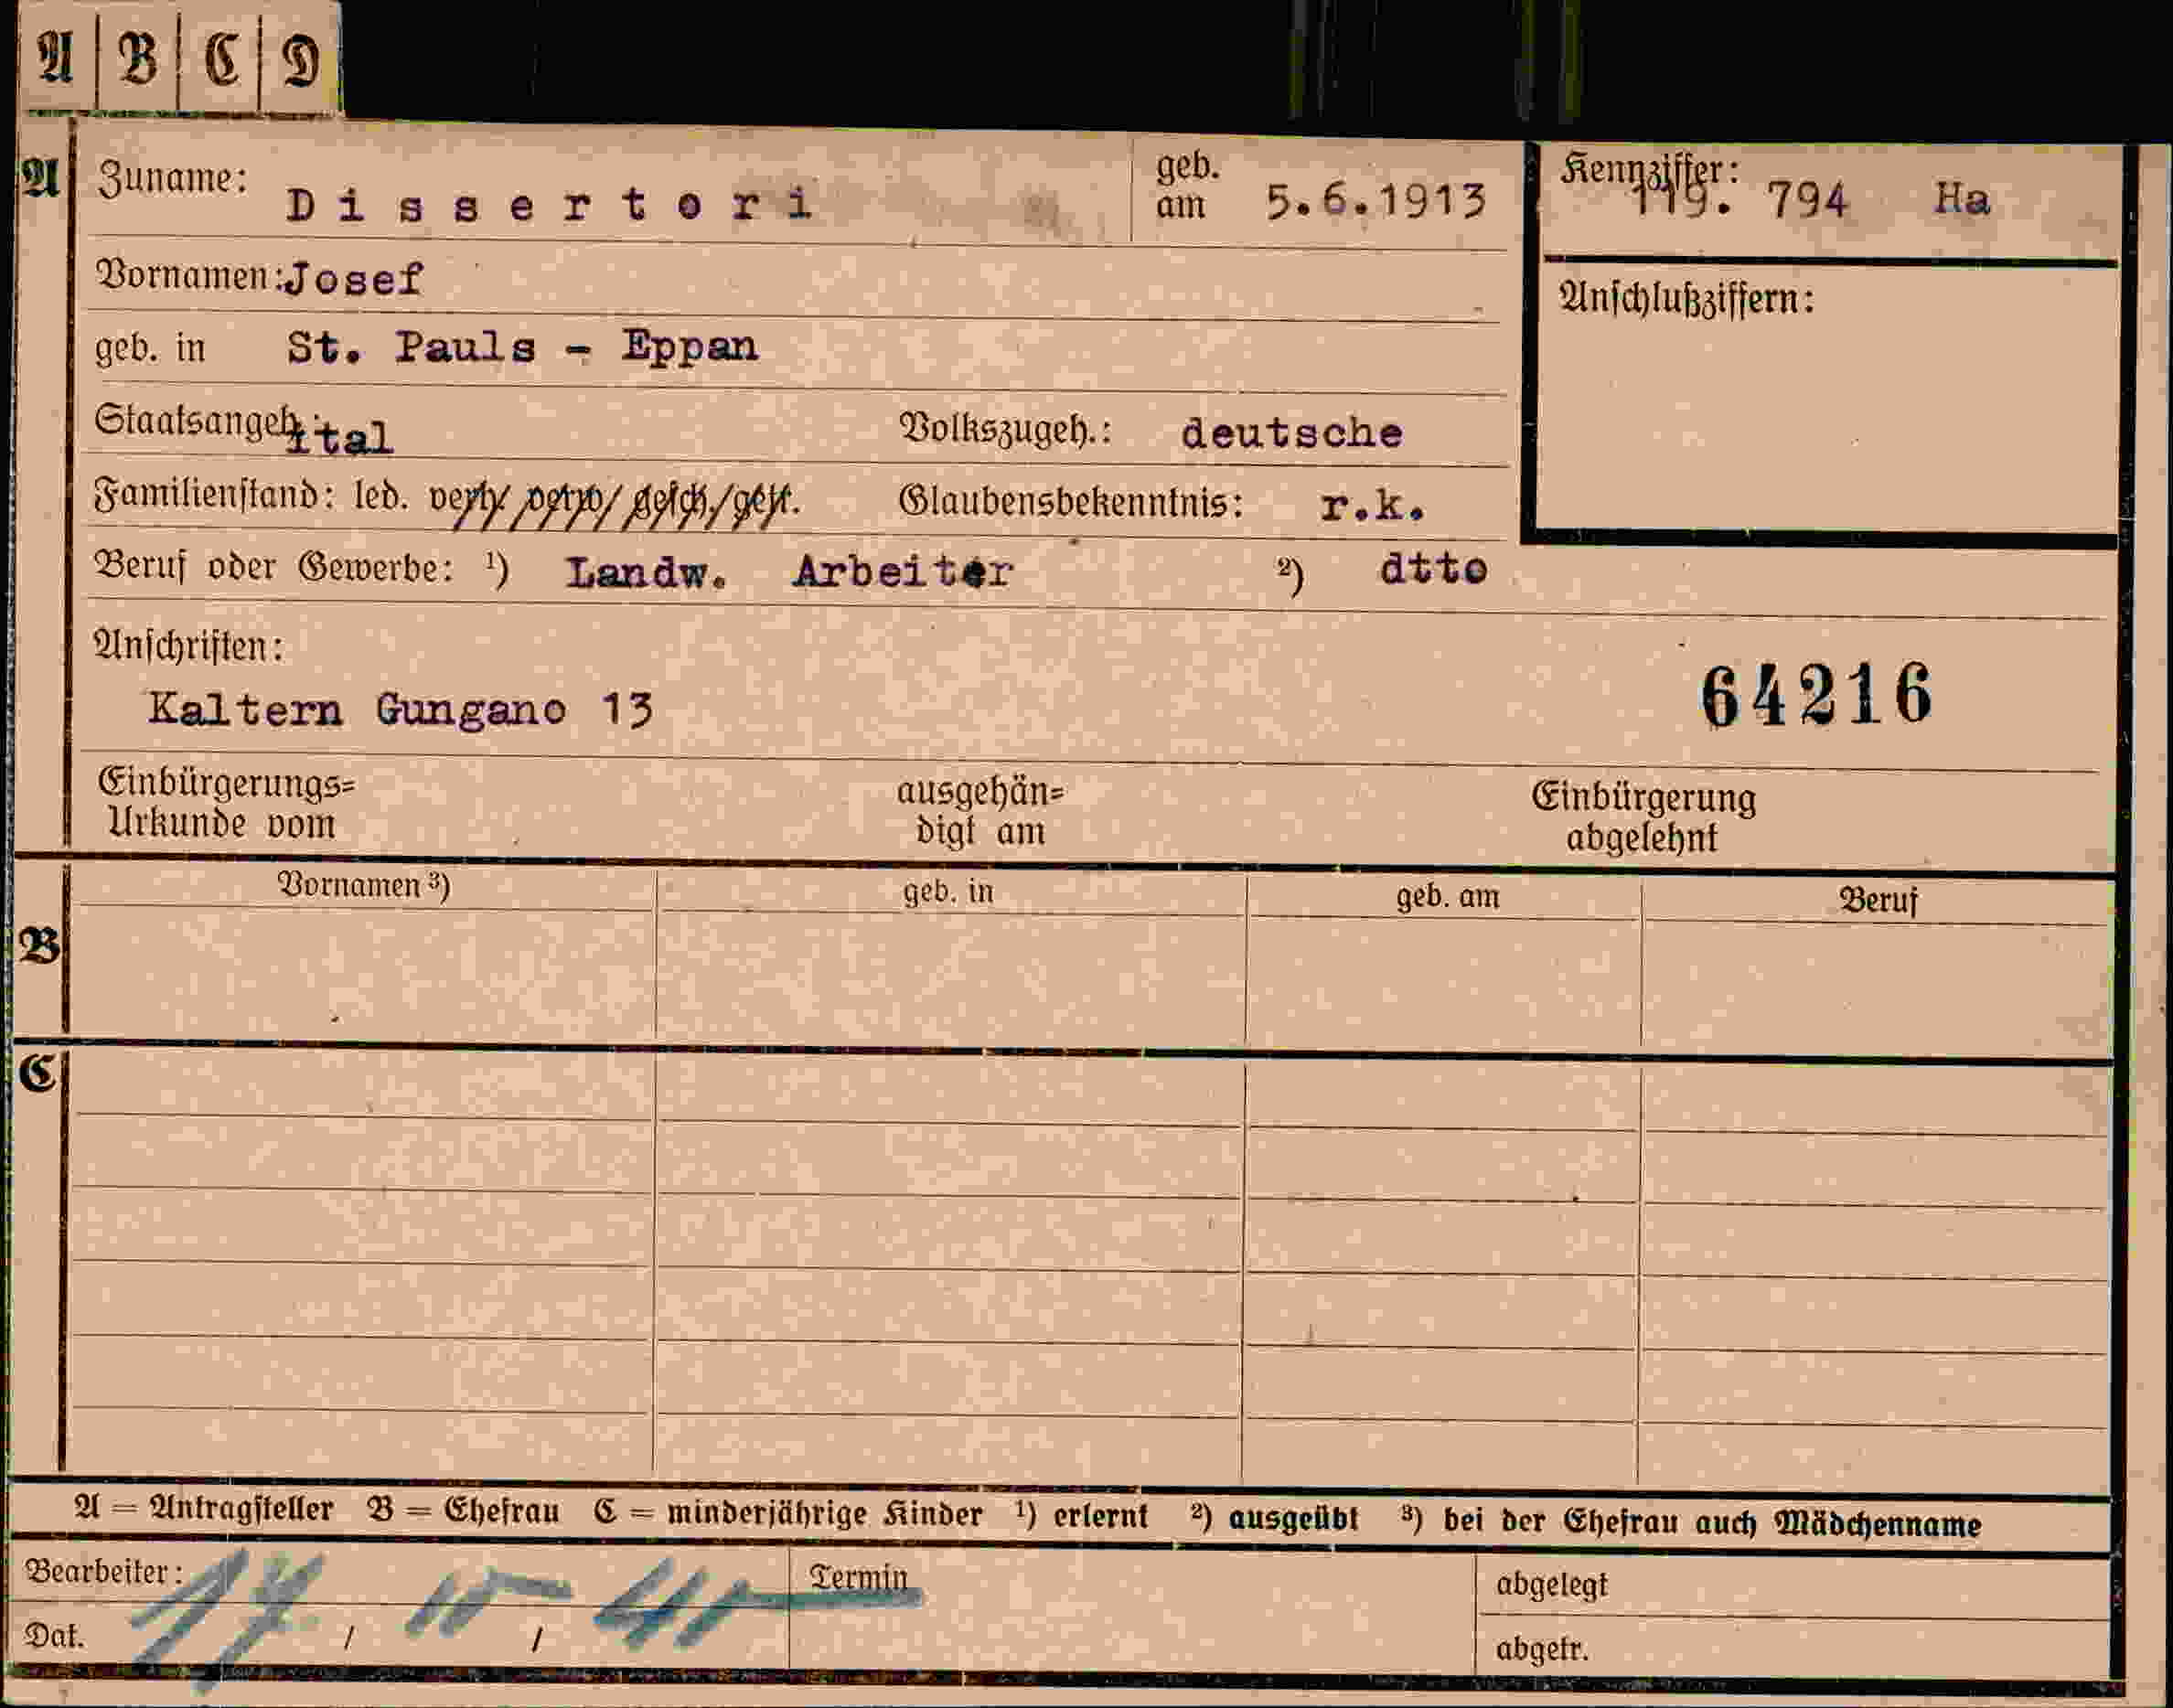 A B C D
A Zuname: Dissertori geb. am 5.6.1913 Kennziffer: 119. 794 Ha
Vornamen: Josef
Anschlußziffern:
geb. in St. Pauls - Eppan
Staatsangeh.: ital Volkszugeh.: deutsche
Familienstand: led. verh./ verw./ gesch./ getr. Glaubensbekenntnis: r.k.
Beruf oder Gewerbe: ¹) Landw. Arbeiter ²) dtto
Anschriften:
Kaltern Gungano 13 64216
Einbürgerungs= ausgehän= Einbürgerung
Urkunde vom digt am abgelehnt
Vornamen ³) geb. in geb. am Beruf
B
C
A = Antragsteller B = Ehefrau C = minderjährige Kinder ¹) erlernt ²) ausgeübt ³) bei der Ehefrau auch Mädchenname
Bearbeiter: Termin abgelegt
Dat. / / abgetr.